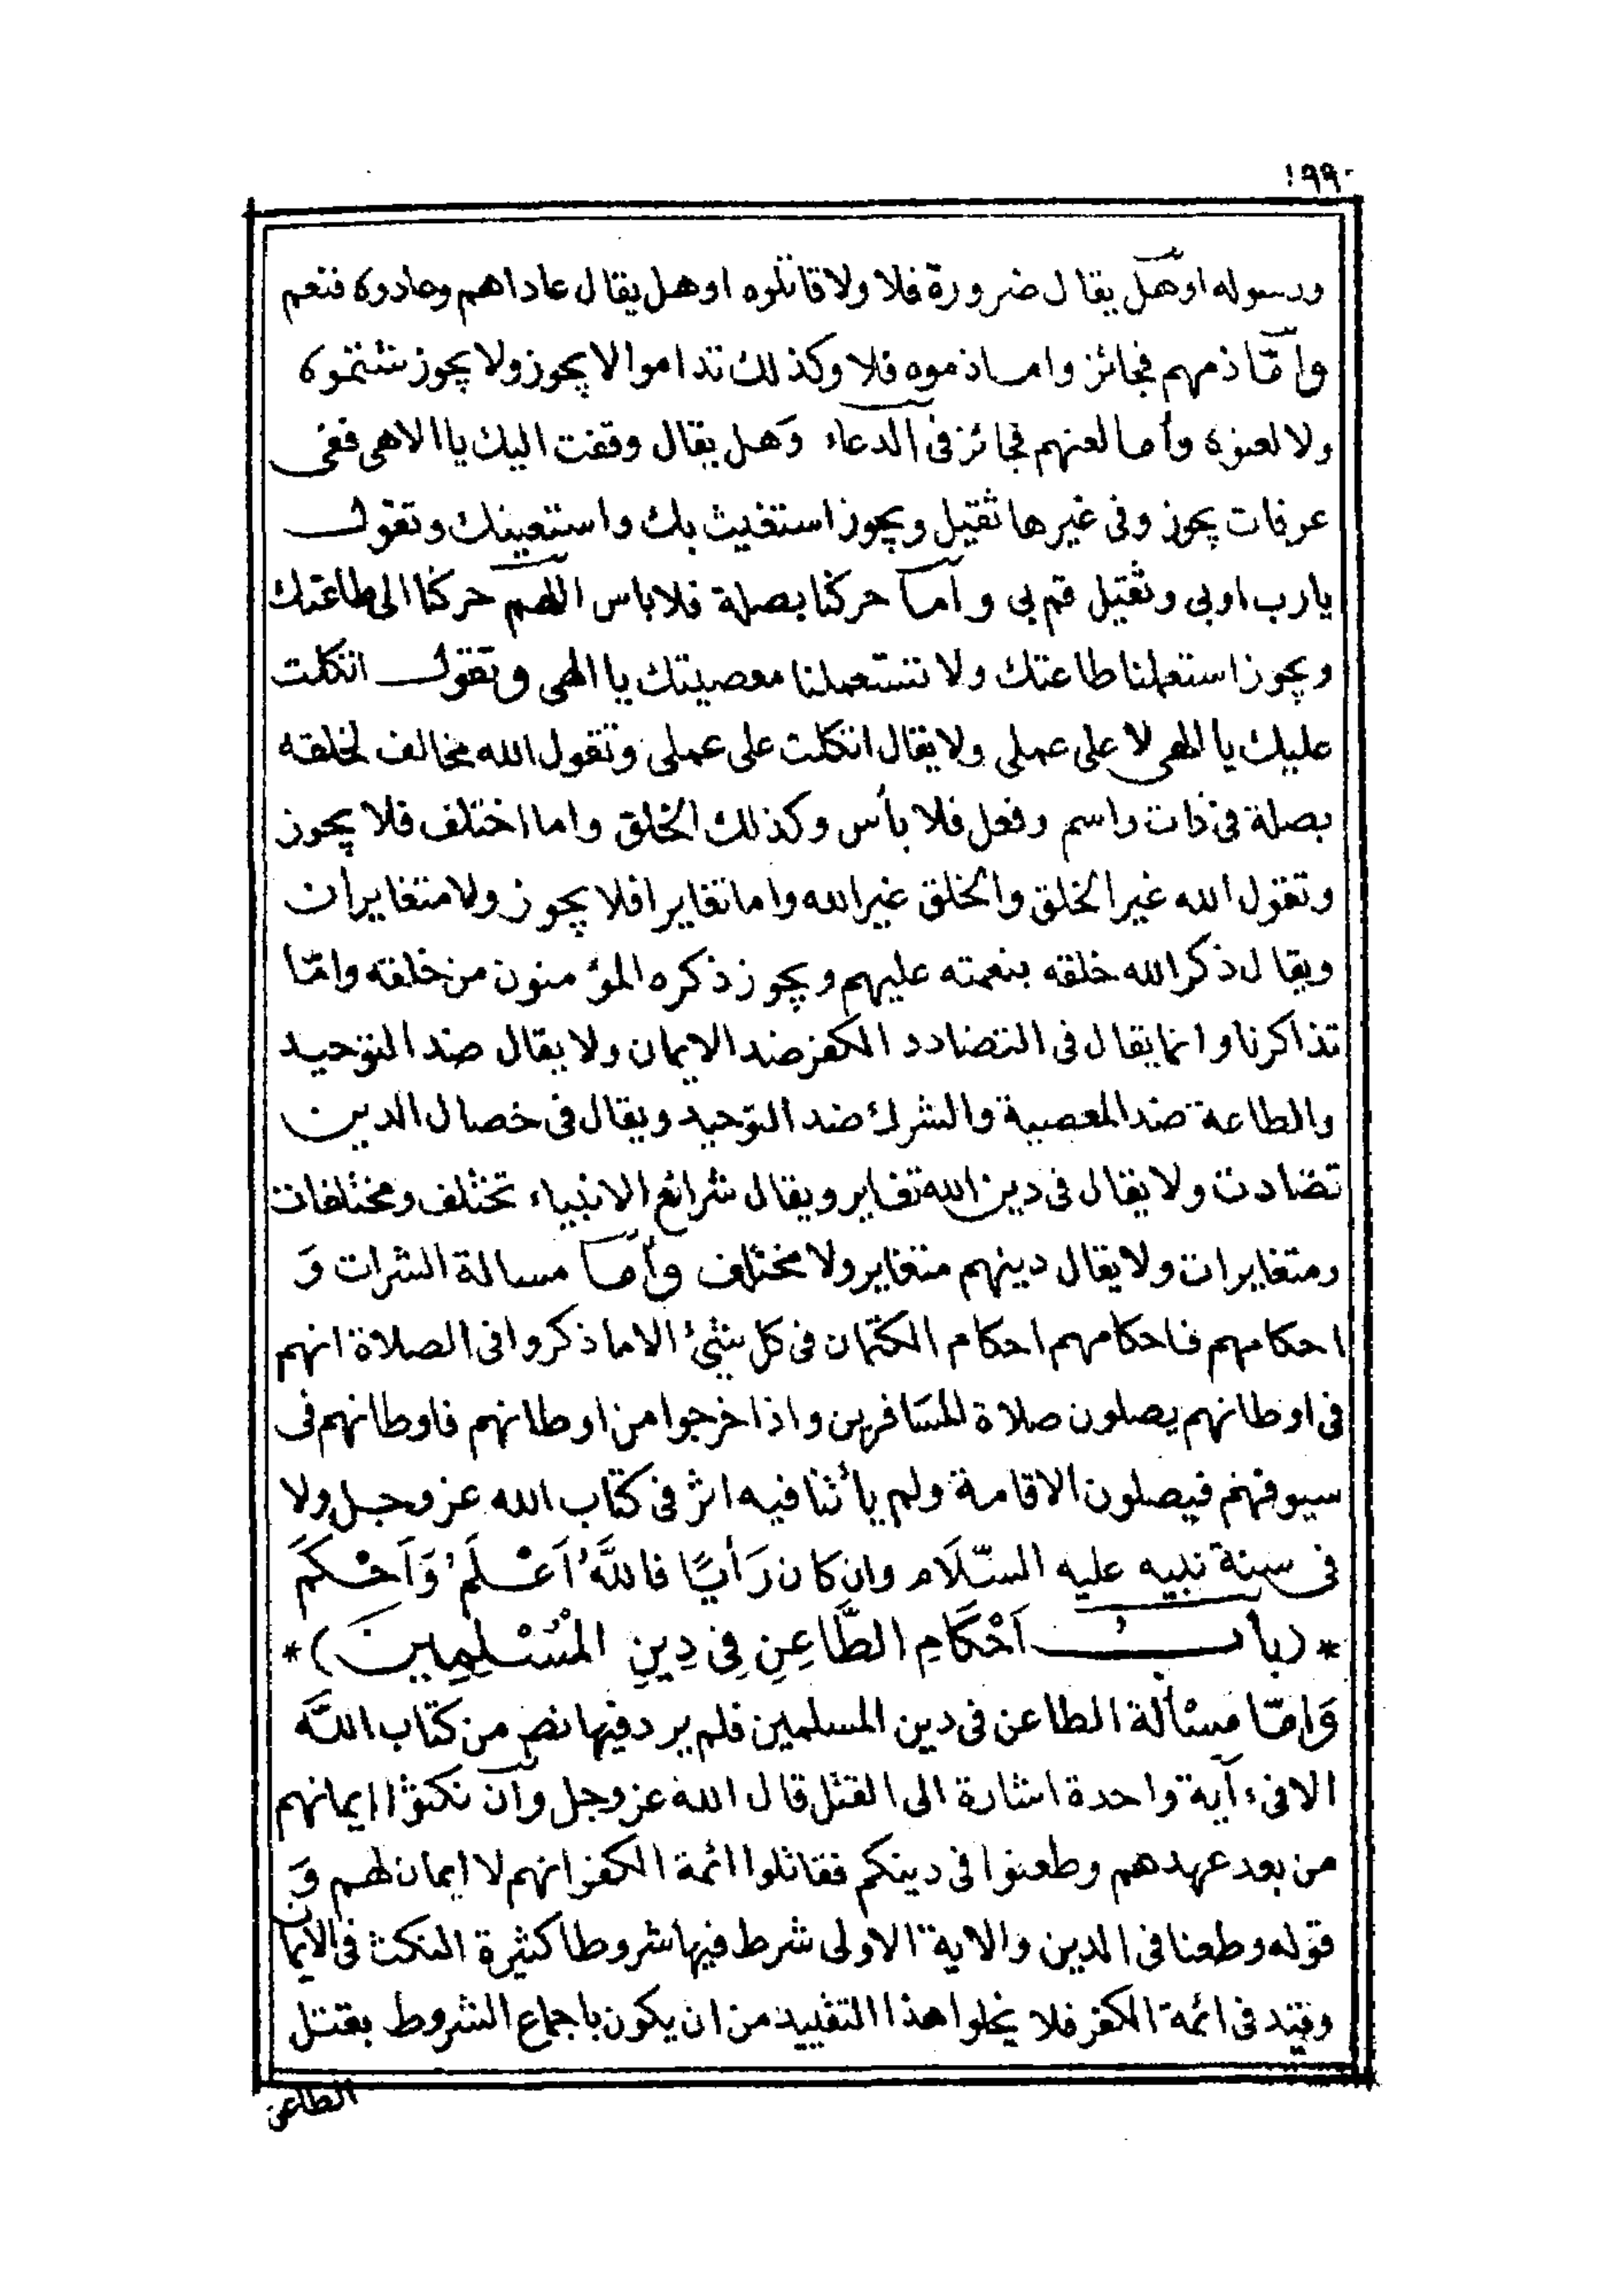 ١٩٩٠
ورسوله او هل يقال ضرورة فلا ولا قاتلوه او هل يقال عاداهم وعادوه فنعم
واما ذمهم فجائز واما ذموه فلا وكذلك تذاموا لا يجوز ولا يجوز شتموه
ولا لعنوه وأما لعنهم فجائز في الدعاء وهل يقال وقفت اليك يا الاهى ففى
عرفات يجوز وفى غيرها ثقيل ويجوز استغيث بك واستعينك وتقول
يارب اوبى وثقيل قم بى وأما حركنا بصلة فلا باس اللهم حركنا الى طاعتك
ويجوز استعملنا طاعتك ولا تستعملنا معصيتك يا الهى وتقول اتكلت
عليك يا الهى لا على عملى ولا يقال اتكلت على عملى وتقول الله مخالف لخلقه
بصلة فى ذات واسم وفعل فلا بأس وكذلك الخلق واما اختلف فلا يجوز
وتقول الله غير الخلق والخلق غير الله واما تغايرا فلا يجوز ولا متغايران
ويقال ذكر الله خلقه بنعمته عليهم ويجوز ذكره المؤمنون من خلقه وامّا
تذاكرنا وانما يقال فى التضادد الكفر ضد الايمان ولا يقال ضد التوحيد
والطاعة ضد المعصية والشرك ضد التوحيد ويقال فى خصال الدين
تضادت ولا يقال فى دين الله تغاير ويقال شرائع الانبياء تختلف ومختلفات
ومتغايرات ولا يقال دينهم متغاير ولا مختلف وأما مسالة الشرات وَ
احكامهم فاحكامهم احكام الكتمان فى كل شئ الا ما ذكروا فى الصلاة انهم
فى اوطانهم يصلون صلاة المسَافرين واذا خرجوا من اوطانهم فاوطانهم فى
سيوفهم فيصلون الاقامة ولم يأتنا فيه اثر فى كتاب الله عز وجل ولا
فى سنة نبيه عليه السّلَام وان كان رَأيًا فاللَّهُ اَعْلَمُ وَاَحْكَمَ
* (بابُ اَحْكَامِ الطَّاعِنِ فِى دِينِ المُسْلِمِينَ) *
وَامّا مسْألة الطاعن فى دين المسلمين فلم يرد فيها نص من كتاب اللَّه
الا فى ءآية واحدة اشارة الى القتل قال الله عز وجل وان نكثوا ايمانهم
من بعد عهدهم وطعنوا فى دينكم فقاتلوا ائمة الكفر انهم لا ايمان لهم وَ
قوله وطعنا فى الدين والاية الاولى شرط فيها شروطا كثيرة النكث فى الايمان
وقيد فى ائمة الكفر فلا يخلوا هذا التقييد من ان يكون باجماع الشروط بقتل
الطاعن